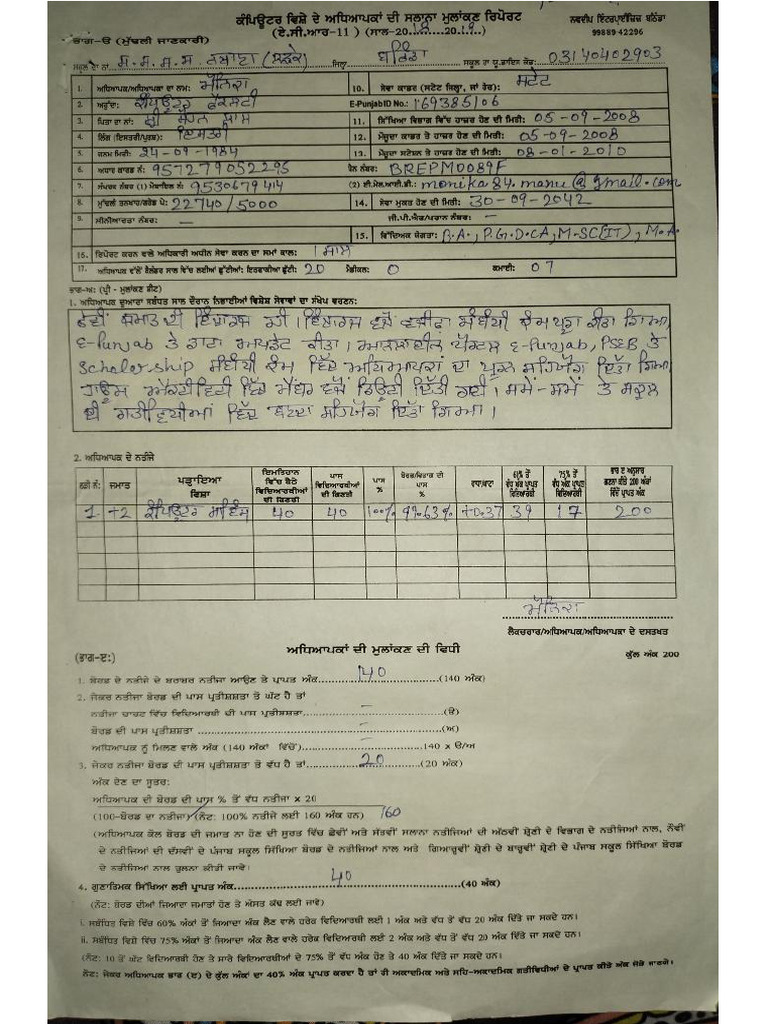 ਕੰਪਿਊਟਰ ਵਿਸ਼ੇ ਦੇ ਅਧਿਆਪਕਾਂ ਦੀ ਸਲਾਨਾ ਮੁਲਾਂਕਣ ਰਿਪੋਰਟ
ਨਵਦੀਪ ਇੰਟਰਪ੍ਰਾਈਜ਼ਿਜ਼ ਬਠਿੰਡਾ
(ਏ.ਸੀ.ਆਰ-11 ) (ਸਾਲ-2018 2019)
99889 42296
ਭਾਗ-ੳ (ਮੁੱਢਲੀ ਜਾਣਕਾਰੀ)
ਸਕੂਲ ਦਾ ਨਾਂ ਸ.ਸ.ਸ.ਸ ਜ਼ਿਲ੍ਹਾ ਬਠਿੰਡਾ ਸਕੂਲ ਦਾ ਯੂ.ਡਾਇਸ ਕੋਡ: 03140402903
1. ਅਧਿਆਪਕ/ਅਧਿਆਪਕਾ ਦਾ ਨਾਮ: ਮੋਨਿਕਾ 10. ਸੇਵਾ ਕਾਡਰ (ਸਟੇਟ ਜ਼ਿਲ੍ਹਾ, ਜਾਂ ਹੋਰ): ਸਟੇਟ
2. ਅਹੁੱਦਾ: ਕੰਪਿਊਟਰ ਫੈਕਲਟੀ E-Punjab ID No.: 169385106
3. ਪਿਤਾ ਦਾ ਨਾਂ: ਸ਼੍ਰੀ ਮੋਹਨ ਲਾਲ 11. ਸਿੱਖਿਆ ਵਿਭਾਗ ਵਿੱਚ ਹਾਜ਼ਰ ਹੋਣ ਦੀ ਮਿਤੀ: 05-09-2008
4. ਲਿੰਗ (ਇਸਤਰੀ/ਪੁਰਸ਼): ਇਸਤਰੀ 12. ਮੌਜੂਦਾ ਕਾਡਰ ਤੇ ਹਾਜ਼ਰ ਹੋਣ ਦੀ ਮਿਤੀ: 05-09-2008
5. ਜਨਮ ਮਿਤੀ: 24-09-1984 13. ਮੌਜੂਦਾ ਸਟੇਸ਼ਨ ਤੇ ਹਾਜ਼ਰ ਹੋਣ ਦੀ ਮਿਤੀ: 08-01-2010
6. ਅਧਾਰ ਕਾਰਡ ਨੰ: 957279052295 ਪੈਨ ਨੰਬਰ: BREPM0089F
7. ਸੰਪਰਕ ਨੰਬਰ (1) ਮੋਬਾਇਲ ਨੰ: 9530679414 (2) ਈ.ਮੇਲ.ਆਈ.ਡੀ.: monika84.manu@gmail.com
8. ਮੁੱਢਲੀ ਤਨਖਾਹ/ਗਰੇਡ ਪੇ: 22740/5000 14. ਸੇਵਾ ਮੁਕਤ ਹੋਣ ਦੀ ਮਿਤੀ: 30-09-2042
9. ਸੀਨੀਆਰਤਾ ਨੰਬਰ: – ਜੀ.ਪੀ.ਐਫ/ਪਰਾਨ ਨੰਬਰ: –
15. ਵਿੱਦਿਅਕ ਯੋਗਤਾ: B.A., P.G.DCA, M.SC(IT), M.A.
16. ਰਿਪੋਰਟ ਕਰਨ ਵਾਲੇ ਅਧਿਕਾਰੀ ਅਧੀਨ ਸੇਵਾ ਕਰਨ ਦਾ ਸਮਾਂ ਕਾਲ: 1 ਸਾਲ
17. ਅਧਿਆਪਕ ਵੱਲੋਂ ਕੈਲੰਡਰ ਸਾਲ ਵਿੱਚ ਲਈਆਂ ਛੁੱਟੀਆਂ: ਇਤਫਾਕੀਆ ਛੁੱਟੀ: 20 ਮੈਡੀਕਲ: 0 ਕਮਾਈ: 07
ਭਾਗ-ਅ: (ਪ੍ਰੀ - ਮੁਲਾਂਕਣ ਸ਼ੀਟ)
1. ਅਧਿਆਪਕ ਦੁਆਰਾ ਸਬੰਧਤ ਸਾਲ ਦੌਰਾਨ ਨਿਭਾਈਆਂ ਵਿਸ਼ੇਸ਼ ਸੇਵਾਵਾਂ ਦਾ ਸੰਖੇਪ ਵਰਣਨ:
ਛੇਵੀਂ ਜਮਾਤ ਦੀ ਇੰਚਾਰਜ ਰਹੀ। ਇੰਚਾਰਜ ਵਜੋਂ ਵਜ਼ੀਫ਼ਾ ਸੰਬੰਧੀ ਕੰਮ ਪੂਰਾ ਕੀਤਾ ਗਿਆ,
E-Punjab ਤੇ ਡਾਟਾ ਅਪਡੇਟ ਕੀਤਾ। ਆਨਲਾਈਨ ਪੋਰਟਲ E-Punjab, PSEB ਤੇ
Scholership ਸੰਬੰਧੀ ਕੰਮ ਵਿੱਚ ਅਧਿਆਪਕਾਂ ਦਾ ਪੂਰਨ ਸਹਿਯੋਗ ਦਿੱਤਾ ਗਿਆ,
ਹਾਊਸ ਐਕਟੀਵਿਟੀ ਵਿੱਚ ਮੈਂਬਰ ਵਜੋਂ ਡਿਊਟੀ ਦਿੱਤੀ ਗਈ। ਸਮੇਂ-ਸਮੇਂ ਤੇ ਸਕੂਲ
ਦੀ ਗਤੀਵਿਧੀਆਂ ਵਿੱਚ ਬਣਦਾ ਸਹਿਯੋਗ ਦਿੱਤਾ ਗਿਆ।
2. ਅਧਿਆਪਕ ਦੇ ਨਤੀਜੇ
ਲੜੀ ਨੰ: ਜਮਾਤ ਪੜ੍ਹਾਇਆ ਵਿਸ਼ਾ ਇਮਤਿਹਾਨ ਵਿੱਚ ਬੈਠੇ ਵਿਦਿਆਰਥੀਆਂ ਦੀ ਗਿਣਤੀ ਪਾਸ ਵਿਦਿਆਰਥੀਆਂ ਦੀ ਗਿਣਤੀ ਪਾਸ % ਬੋਰਡ/ਵਿਭਾਗ ਦੀ ਪਾਸ % ਵਾਧਾ/ਘਾਟਾ 60% ਤੋਂ ਵੱਧ ਅੰਕ ਪ੍ਰਾਪਤ ਵਿਦਿਆਰਥੀ 75% ਤੋਂ ਵੱਧ ਅੰਕ ਪ੍ਰਾਪਤ ਵਿਦਿਆਰਥੀ ਭਾਗ ੲ ਅਨੁਸਾਰ ਗਣਨਾ ਕੀਤੇ 200 ਅੰਕਾਂ ਵਿੱਚੋਂ ਪ੍ਰਾਪਤ ਅੰਕ
1. +2 ਕੰਪਿਊਟਰ ਸਾਇੰਸ 40 40 100% 99.63% +0.37 39 17 200
ਮੋਨਿਕਾ
ਲੈਕਚਰਾਰ/ਅਧਿਆਪਕ/ਅਧਿਆਪਕਾ ਦੇ ਦਸਤਖਤ
ਅਧਿਆਪਕਾਂ ਦੀ ਮੁਲਾਂਕਣ ਦੀ ਵਿਧੀ
(ਭਾਗ-ੲ:) ਕੁੱਲ ਅੰਕ 200
1. ਬੋਰਡ ਦੇ ਨਤੀਜੇ ਦੇ ਬਰਾਬਰ ਨਤੀਜਾ ਆਉਣ ਤੇ ਪ੍ਰਾਪਤ ਅੰਕ 140 (140 ਅੰਕ)
2. ਜੇਕਰ ਨਤੀਜਾ ਬੋਰਡ ਦੀ ਪਾਸ ਪ੍ਰਤੀਸ਼ਸ਼ਤਾ ਤੋਂ ਘੱਟ ਹੈ ਤਾਂ
ਨਤੀਜਾ ਚਾਰਟ ਵਿੱਚ ਵਿਦਿਆਰਥੀ ਦੀ ਪਾਸ ਪ੍ਰਤੀਸ਼ਸ਼ਤਾ – (ੳ)
ਬੋਰਡ ਦੀ ਪਾਸ ਪ੍ਰਤੀਸ਼ਸ਼ਤਾ – (ਅ)
ਅਧਿਆਪਕ ਨੂੰ ਮਿਲਣ ਵਾਲੇ ਅੰਕ (140 ਅੰਕਾਂ ਵਿੱਚੋਂ) – 140 x ੳ/ਅ
3. ਜੇਕਰ ਨਤੀਜਾ ਬੋਰਡ ਦੀ ਪਾਸ ਪ੍ਰਤੀਸ਼ਸ਼ਤਾ ਤੋਂ ਵੱਧ ਹੈ ਤਾਂ 20 (20 ਅੰਕ)
ਅੰਕ ਦੇਣ ਦਾ ਸੂਤਰ:
ਅਧਿਆਪਕ ਦੀ ਬੋਰਡ ਦੀ ਪਾਸ % ਤੋਂ ਵੱਧ ਨਤੀਜਾ x 20
(100-ਬੋਰਡ ਦਾ ਨਤੀਜਾ) (ਨੋਟ: 100% ਨਤੀਜੇ ਲਈ 160 ਅੰਕ ਹਨ) 160
(ਅਧਿਆਪਕ ਕੋਲ ਬੋਰਡ ਦੀ ਜਮਾਤ ਨਾ ਹੋਣ ਦੀ ਸੂਰਤ ਵਿੱਚ ਛੇਵੀਂ ਅਤੇ ਸੱਤਵੀਂ ਸਲਾਨਾ ਨਤੀਜਿਆਂ ਦੀ ਅੱਠਵੀਂ ਸ਼੍ਰੇਣੀ ਦੇ ਵਿਭਾਗ ਦੇ ਨਤੀਜਿਆਂ ਨਾਲ, ਨੌਵੀਂ
ਦੇ ਨਤੀਜਿਆਂ ਦੀ ਦੱਸਵੀਂ ਦੇ ਪੰਜਾਬ ਸਕੂਲ ਸਿੱਖਿਆ ਬੋਰਡ ਦੇ ਨਤੀਜਿਆਂ ਨਾਲ ਅਤੇ ਗਿਆਰੂਵੀਂ ਸ਼੍ਰੇਣੀ ਦੇ ਬਾਰੂਵੀਂ ਸ਼੍ਰੇਣੀ ਦੇ ਪੰਜਾਬ ਸਕੂਲ ਸਿੱਖਿਆ ਬੋਰਡ
ਦੇ ਨਤੀਜਿਆਂ ਨਾਲ ਤੁਲਨਾ ਕੀਤੀ ਜਾਵੇ)
4. ਗੁਣਾਤਮਿਕ ਸਿੱਖਿਆ ਲਈ ਪ੍ਰਾਪਤ ਅੰਕ 40 (40 ਅੰਕ)
(ਨੋਟ: ਬੋਰਡ ਦੀਆਂ ਜਿਆਦਾ ਜਮਾਤਾਂ ਹੋਣ ਤੇ ਔਸਤ ਕੱਢ ਲਈ ਜਾਵੇ)
i. ਸਬੰਧਿਤ ਵਿਸ਼ੇ ਵਿੱਚ 60% ਅੰਕਾਂ ਤੋਂ ਜਿਆਦਾ ਅੰਕ ਲੈਣ ਵਾਲੇ ਹਰੇਕ ਵਿਦਿਆਰਥੀ ਲਈ 1 ਅੰਕ ਅਤੇ ਵੱਧ ਤੋਂ ਵੱਧ 20 ਅੰਕ ਦਿੱਤੇ ਜਾ ਸਕਦੇ ਹਨ।
ii. ਸਬੰਧਿਤ ਵਿਸ਼ੇ ਵਿੱਚ 75% ਅੰਕਾਂ ਤੋਂ ਜਿਆਦਾ ਅੰਕ ਲੈਣ ਵਾਲੇ ਹਰੇਕ ਵਿਦਿਆਰਥੀ ਲਈ 2 ਅੰਕ ਅਤੇ ਵੱਧ ਤੋਂ ਵੱਧ 20 ਅੰਕ ਦਿੱਤੇ ਜਾ ਸਕਦੇ ਹਨ।
(ਨੋਟ: 10 ਤੋਂ ਘੱਟ ਵਿਦਿਆਰਥੀ ਹੋਣ ਤੇ ਸਾਰੇ ਵਿਦਿਆਰਥੀਆਂ ਦੇ 75% ਤੋਂ ਵੱਧ ਅੰਕ ਹੋਣ ਤੇ 40 ਅੰਕ ਦਿੱਤੇ ਜਾ ਸਕਦੇ ਹਨ।
ਨੋਟ: ਜੇਕਰ ਅਧਿਆਪਕ ਭਾਗ (ੲ) ਦੇ ਕੁੱਲ ਅੰਕਾਂ ਦਾ 40% ਅੰਕ ਪ੍ਰਾਪਤ ਕਰਦਾ ਹੈ ਤਾਂ ਹੀ ਅਕਾਦਮਿਕ ਅਤੇ ਸਹਿ-ਅਕਾਦਮਿਕ ਗਤੀਵਿਧੀਆਂ ਦੇ ਪ੍ਰਾਪਤ ਕੀਤੇ ਅੰਕ ਜੋੜੇ ਜਾਣਗੇ।